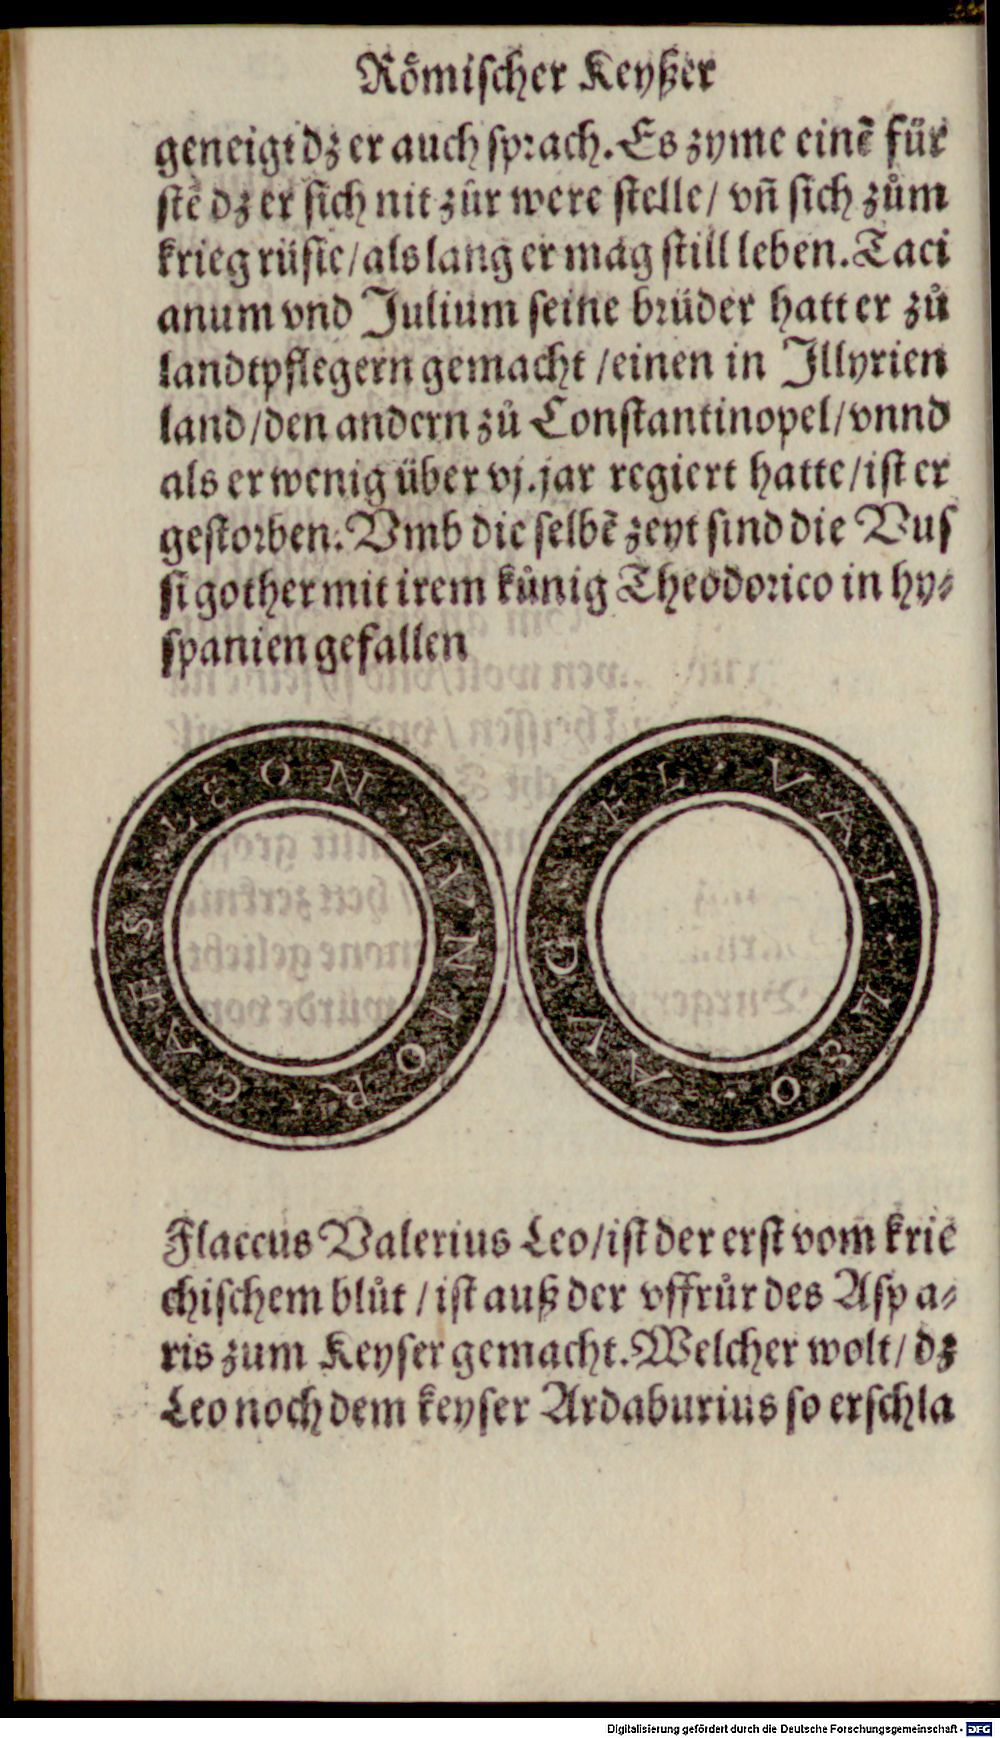 Roͤmischer Keyßer
geneigt dz er auch sprach. Es zyme einē für
stē dz er sich nit zůr were stelle / vn̄ sich zům
krieg rüste / als lang er mag still leben. Taci
anum vnd Julium seine brüder hatt er zů
landtpflegern gemacht / einen in Jllyrien
land / den andern zů Constantinopel / vnnd
als er wenig über vj. jar regiert hatte / ist er
gestorben. Vmb die selbē zeyt sind die Vus
si gother mit irem künig Theodorico in hy⸗
spanien gefallen
CAES · LEON · IVNIOR ·
FL · VAL · LEO · AVG ·
Flaccus Valerius Leo / ist der erst vom krie
chischem blůt / ist auß der vffrůr des Aspa⸗
ris zum Keyser gemacht. Welcher wolt / dz
Leo noch dem keyser Ardaburius so erschla
Digitalisierung gefördert durch die Deutsche Forschungsgemeinschaft - DFG